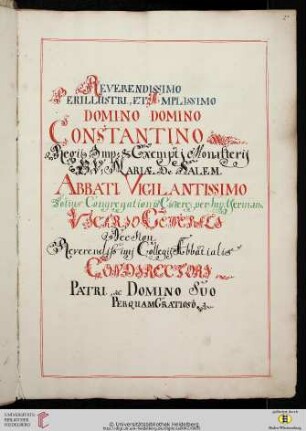 REVERENDISSIMO
PERILLUSTRI, ET AMPLISSIMO
DOMINO DOMINO
CONSTANTINO
Regij Imp: & Exempti Monasterij
B. V. MARIÆ De SALEM
ABBATI VIGILANTISSIMO
Congregationis Cisterc: per Sup: German:
VICARIO GENERALI
Nec Non
Reverendiss: Collegij Abbatialis
CONDIRECTORI
PATRI ac DOMINO SUO
PERQUAM GRATIOSO
UNIVERSITÄTS-
BIBLIOTHEK
HEIDELBERG
© Universitätsbibliothek Heidelberg
Baden-Württemberg